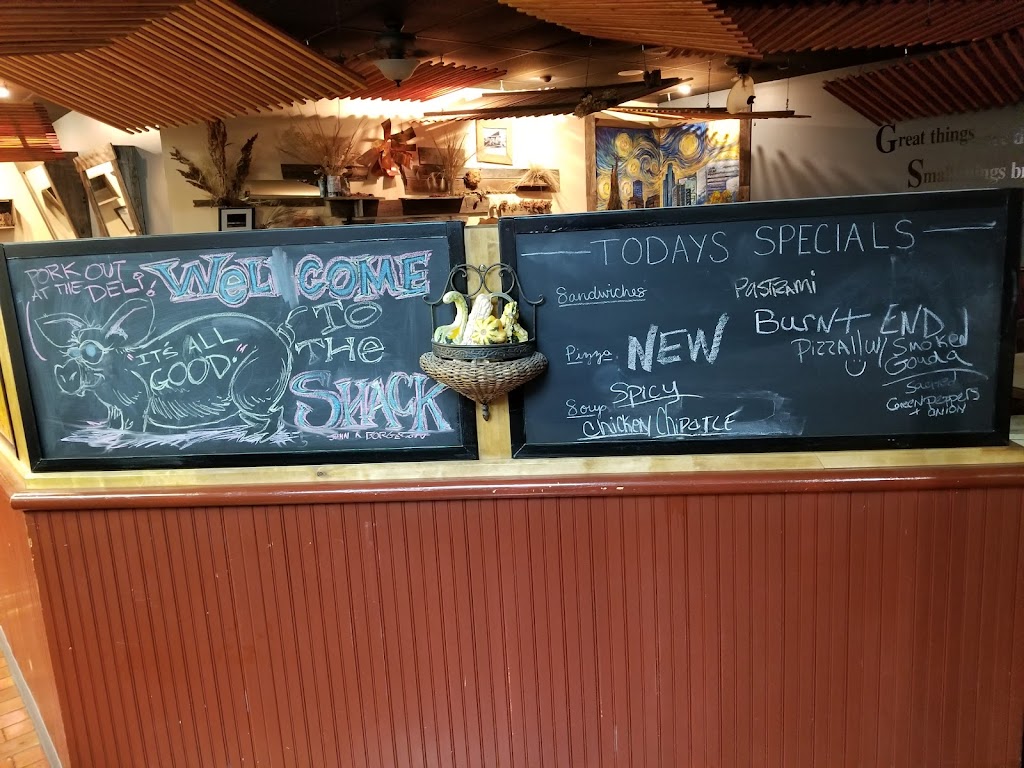 PORK OUT
AT THE
DELi!
WeLCOME
TO
THe
SHACK
"IT'S ALL
GOOD."
TODAYS SPECIALS
Sandwiches
PASTRAMi
Pizza
NEW
BURNt END
PIZZA!! W/ SMOKED
GOUDA
GREEN PEPPERS
+ ONION
Soup
SPICY
CHICKEN CHIPOTLE
Great things
Small things